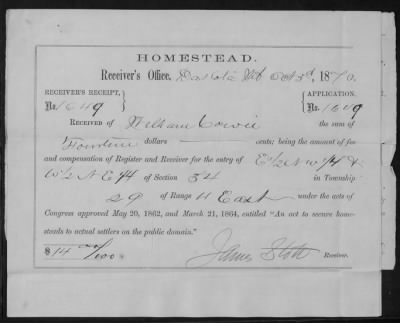 HOMESTEAD.
Receiver's Office, Dakota Neb Oct 3d, 1870.
RECEIVER'S RECEIPT, APPLICATION,
No. 1649 No. 1649
RECEIVED OF William Cowie the sum of
Fourteen dollars — cents; being the amount of fee
and compensation of Register and Receiver for the entry of E 1/2 N W 1/4 &
W 1/2 N E 1/4 of Section 34 in Township
29 of Range 11 East under the acts of
Congress approved May 20, 1862, and March 21, 1864, entitled "An act to secure home-
steads to actual settlers on the public domain."
$14 00/100 James Stott Receiver.